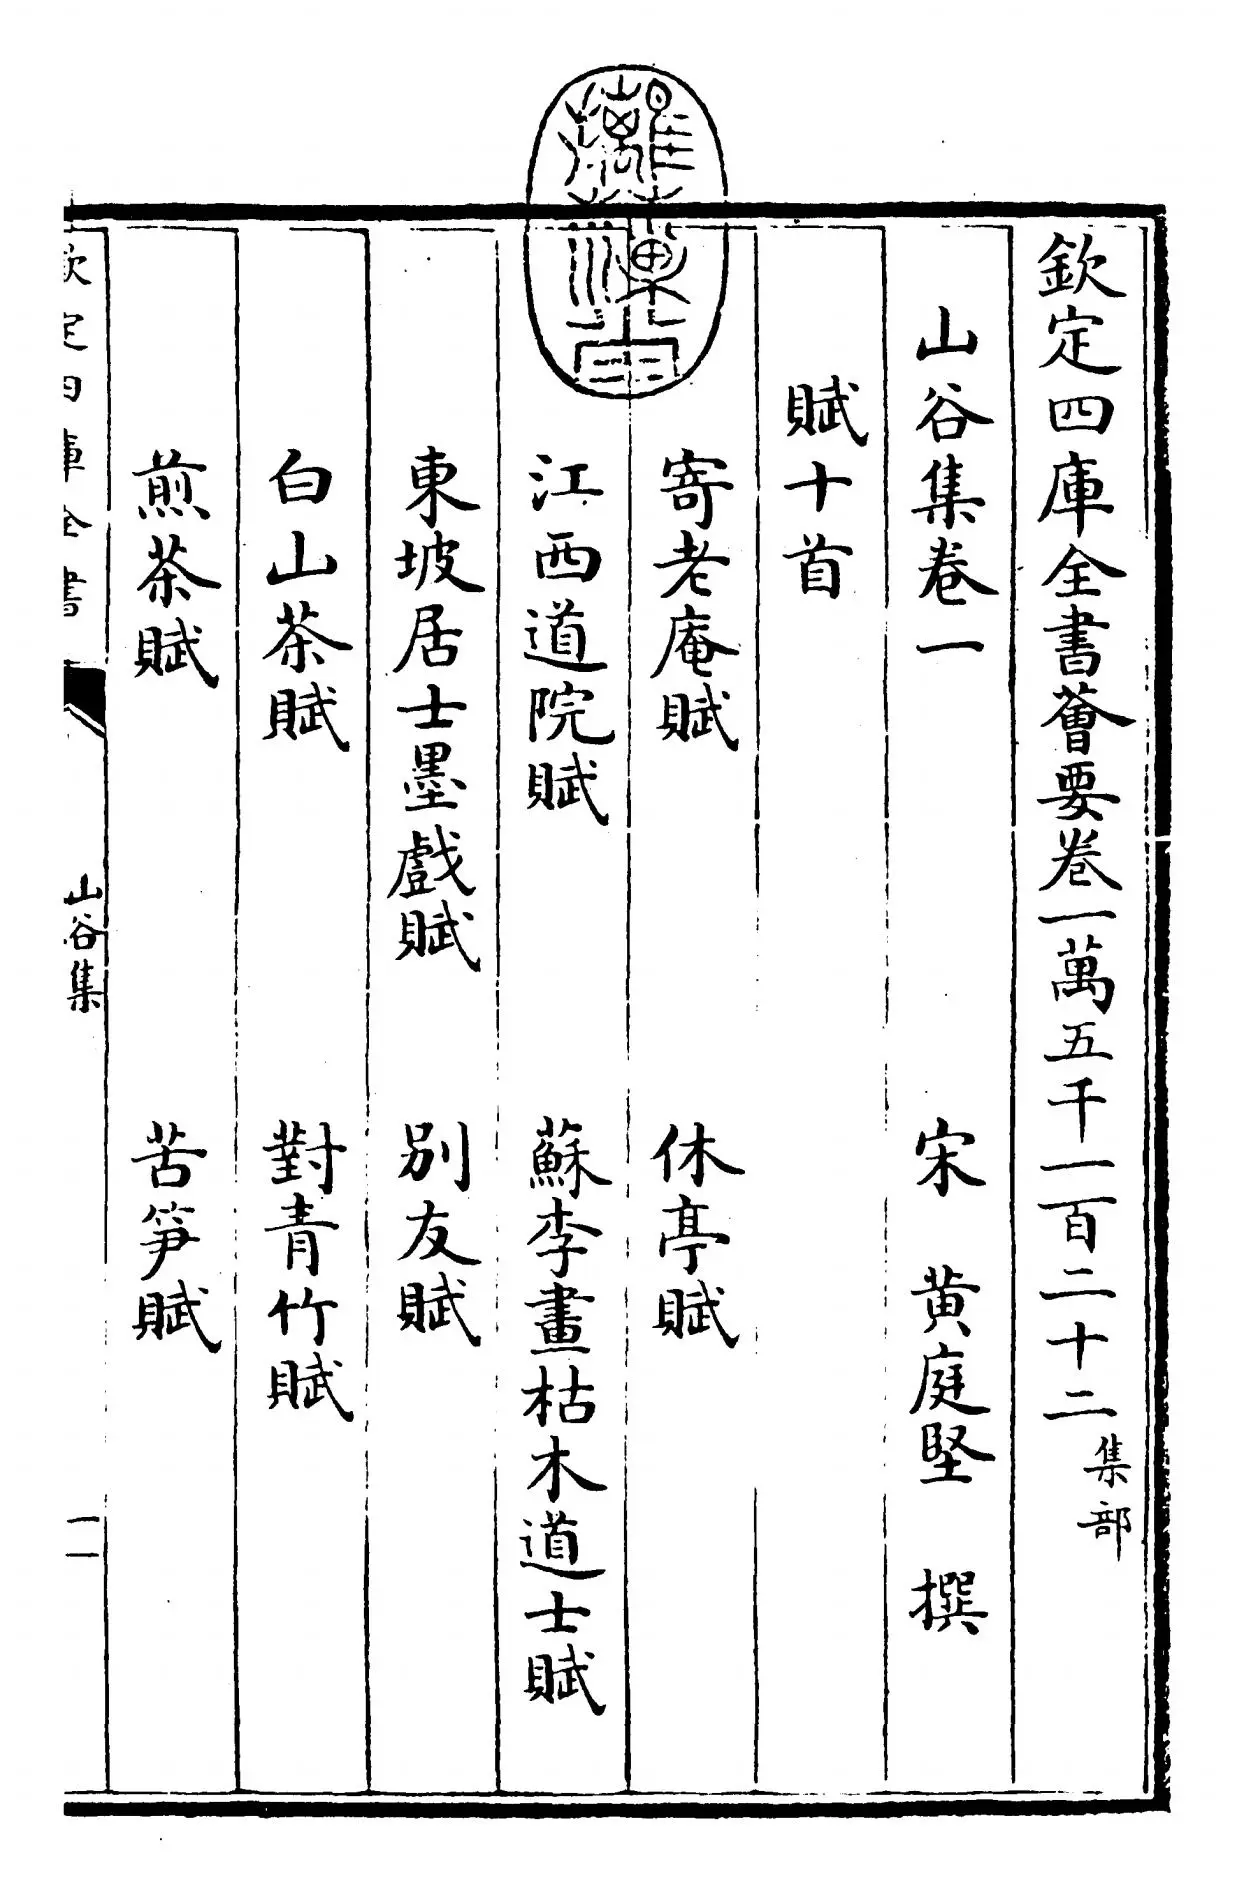 欽定四庫全書薈要卷一萬五千一百二十二 集部
山谷集卷一
宋 黄庭堅 撰
賦十首
寄老庵賦 休亭賦
江西道院賦 蘇李畫枯木道士賦
東坡居士墨戲賦 别友賦
白山茶賦 對青竹賦
煎茶賦 苦笋賦
欽定四庫全書
山谷集
一